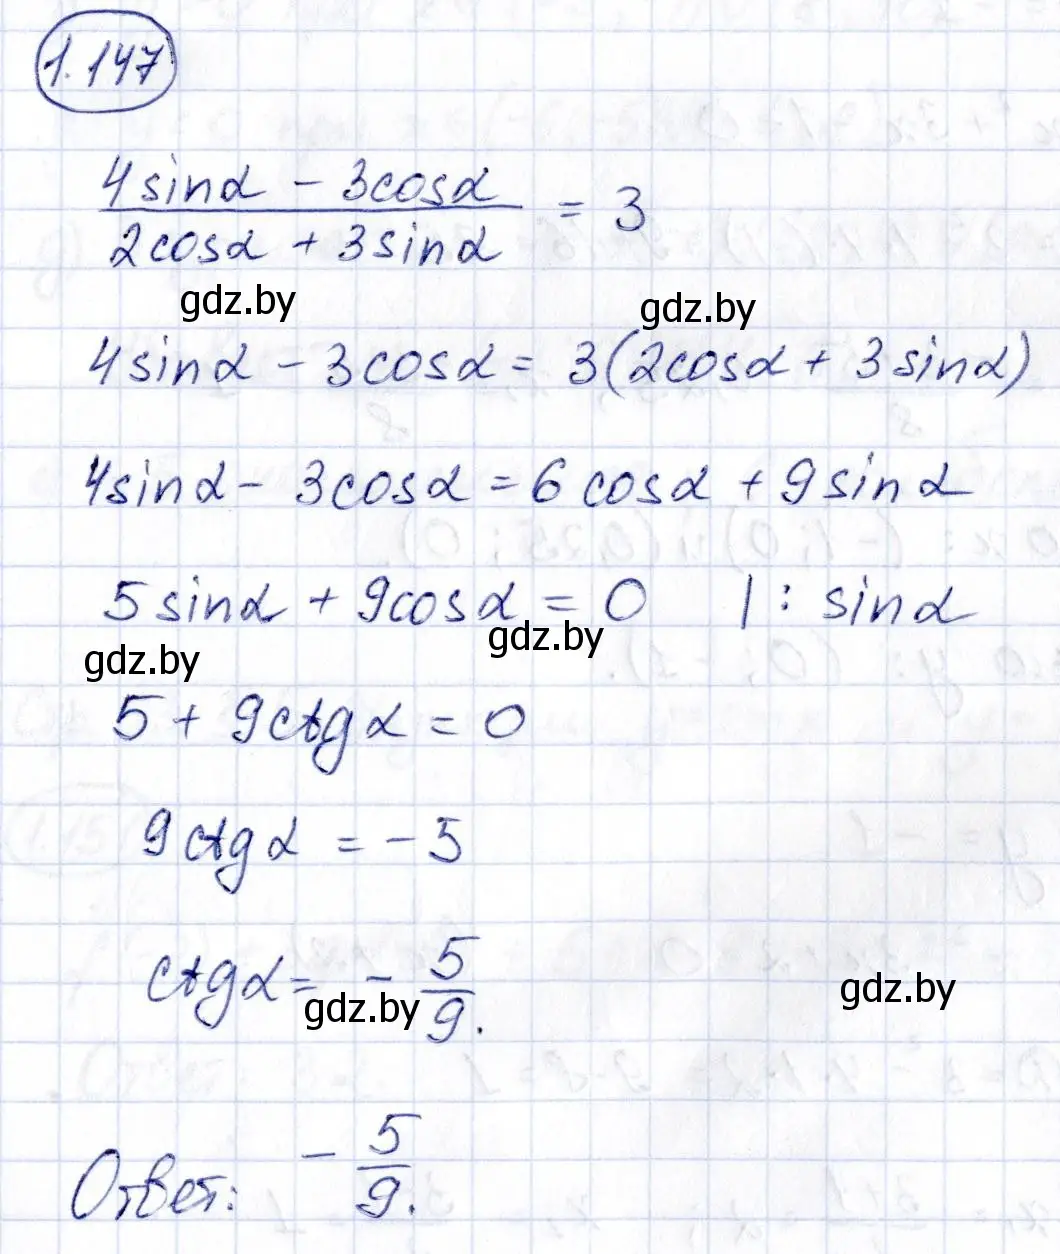 1.147
4sinα - 3cosα
2cosα + 3sinα
= 3
gdz.by
gdz.by
4sinα - 3cosα = 3(2cosα + 3sinα)
4sinα - 3cosα = 6cosα + 9sinα
5sinα + 9cosα = 0 | : sinα
gdz.by
gdz.by
5 + 9ctgα = 0
9ctgα = -5
ctgα = - 5/9.
gdz.by
gdz.by
Ответ: - 5/9.